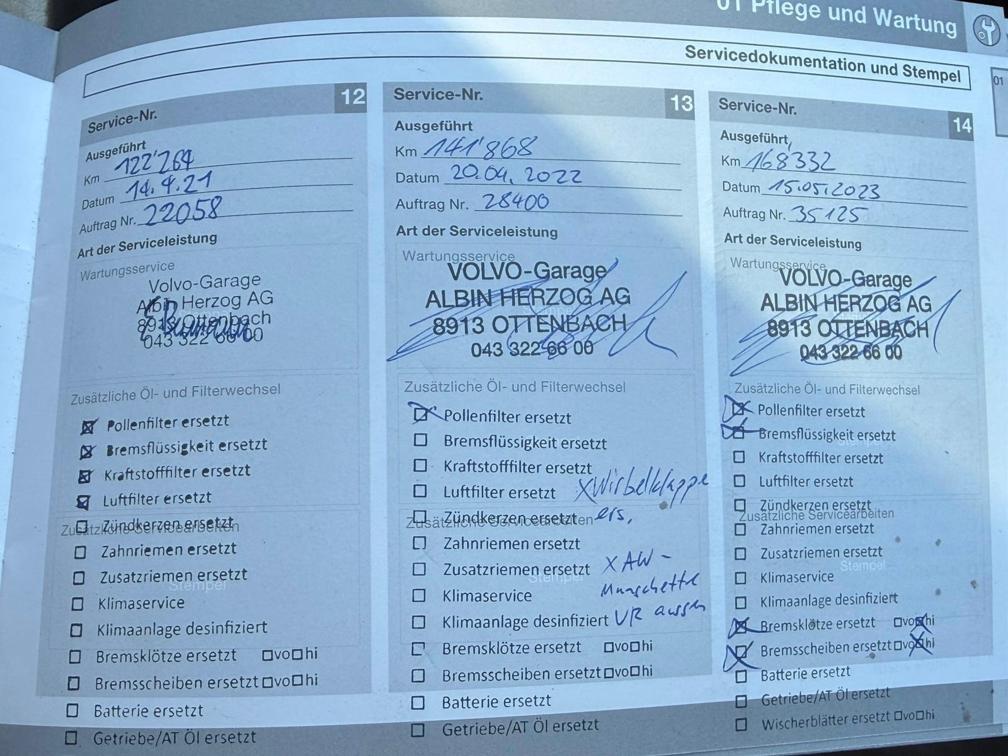 01 Pflege und Wartung
Servicedokumentation und Stempel
01
Service-Nr. 12
Ausgeführt
Km 122'264
Datum 14.4.21
Auftrag Nr. 22058
Art der Serviceleistung
Wartungsservice
Volvo-Garage
Albin Herzog AG
8913 Ottenbach
043 322 66 00
Zusätzliche Öl- und Filterwechsel
Pollenfilter ersetzt
Bremsflüssigkeit ersetzt
Kraftstofffilter ersetzt
Luftfilter ersetzt
Zündkerzen ersetzt
Zusätzliche Servicearbeiten
Zahnriemen ersetzt
Zusatzriemen ersetzt
Stempel
Klimaservice
Klimaanlage desinfiziert
Bremsklötze ersetzt vo hi
Bremsscheiben ersetzt vo hi
Batterie ersetzt
Getriebe/AT Öl ersetzt
Service-Nr. 13
Ausgeführt
Km 141'868
Datum 20.04.2022
Auftrag Nr. 28400
Art der Serviceleistung
Wartungsservice
VOLVO-Garage
ALBIN HERZOG AG
8913 OTTENBACH
043 322 66 00
Zusätzliche Öl- und Filterwechsel
Pollenfilter ersetzt
Bremsflüssigkeit ersetzt
Kraftstofffilter ersetzt
Luftfilter ersetzt XWirbelklappe
Zündkerzen ersetzt ers,
Zusätzliche Servicearbeiten
Zahnriemen ersetzt
Zusatzriemen ersetzt X AW-
Stempel
Klimaservice Manschette
Klimaanlage desinfiziert VR aussen
Bremsklötze ersetzt vo hi
Bremsscheiben ersetzt vo hi
Batterie ersetzt
Getriebe/AT Öl ersetzt
Service-Nr. 14
Ausgeführt
Km 168332
Datum 15.05.2023
Auftrag Nr. 35125
Art der Serviceleistung
Wartungsservice
VOLVO-Garage
ALBIN HERZOG AG
8913 OTTENBACH
043 322 66 00
Zusätzliche Öl- und Filterwechsel
Pollenfilter ersetzt
Bremsflüssigkeit ersetzt
Kraftstofffilter ersetzt
Luftfilter ersetzt
Zündkerzen ersetzt
Zusätzliche Servicearbeiten
Zahnriemen ersetzt
Zusatzriemen ersetzt
Stempel
Klimaservice
Klimaanlage desinfiziert
Bremsklötze ersetzt vo hi
Bremsscheiben ersetzt vo hi
Batterie ersetzt
Getriebe/AT Öl ersetzt
Wischerblätter ersetzt vo hi